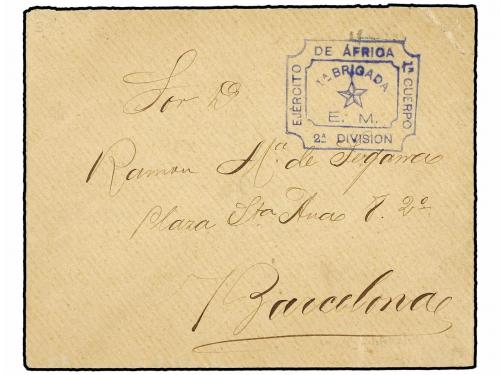 EJÉRCITO DE ÁFRICA 1er CUERPO
1ª BRIGADA
E. M.
2ª DIVISION
Sor Dn
Ramon Mª de Segarra
Plaza Sta Ana 8. 2º
Barcelona